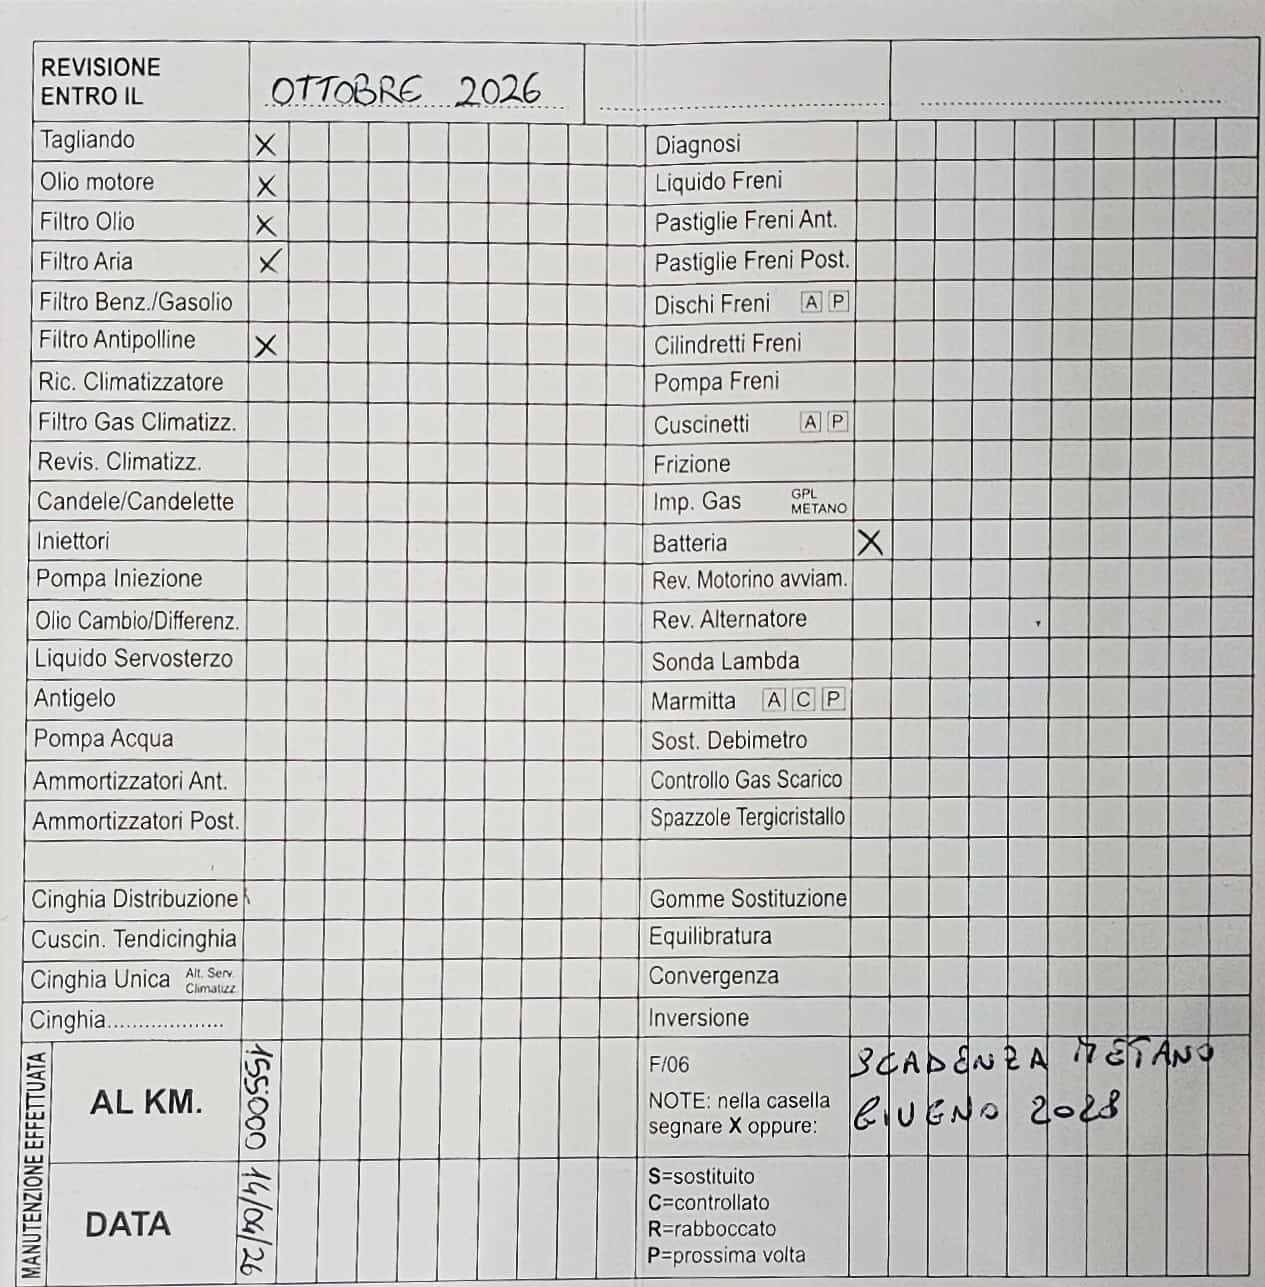 REVISIONE
ENTRO IL
OTTOBRE 2026
Tagliando X
Olio motore X
Filtro Olio X
Filtro Aria X
Filtro Benz./Gasolio
Filtro Antipolline X
Ric. Climatizzatore
Filtro Gas Climatizz.
Revis. Climatizz.
Candele/Candelette
Iniettori
Pompa Iniezione
Olio Cambio/Differenz.
Liquido Servosterzo
Antigelo
Pompa Acqua
Ammortizzatori Ant.
Ammortizzatori Post.
Cinghia Distribuzione
Cuscin. Tendicinghia
Cinghia Unica Alt. Serv. Climatizz.
Cinghia...................
Diagnosi
Liquido Freni
Pastiglie Freni Ant.
Pastiglie Freni Post.
Dischi Freni A P
Cilindretti Freni
Pompa Freni
Cuscinetti A P
Frizione
Imp. Gas GPL METANO
Batteria X
Rev. Motorino avviam.
Rev. Alternatore
Sonda Lambda
Marmitta A C P
Sost. Debimetro
Controllo Gas Scarico
Spazzole Tergicristallo
Gomme Sostituzione
Equilibratura
Convergenza
Inversione
MANUTENZIONE EFFETTUATA
AL KM. 155000
DATA 14/04/26
F/06
NOTE: nella casella
segnare X oppure:
S=sostituito
C=controllato
R=rabboccato
P=prossima volta
SCADENZA METANO
GIUGNO 2028